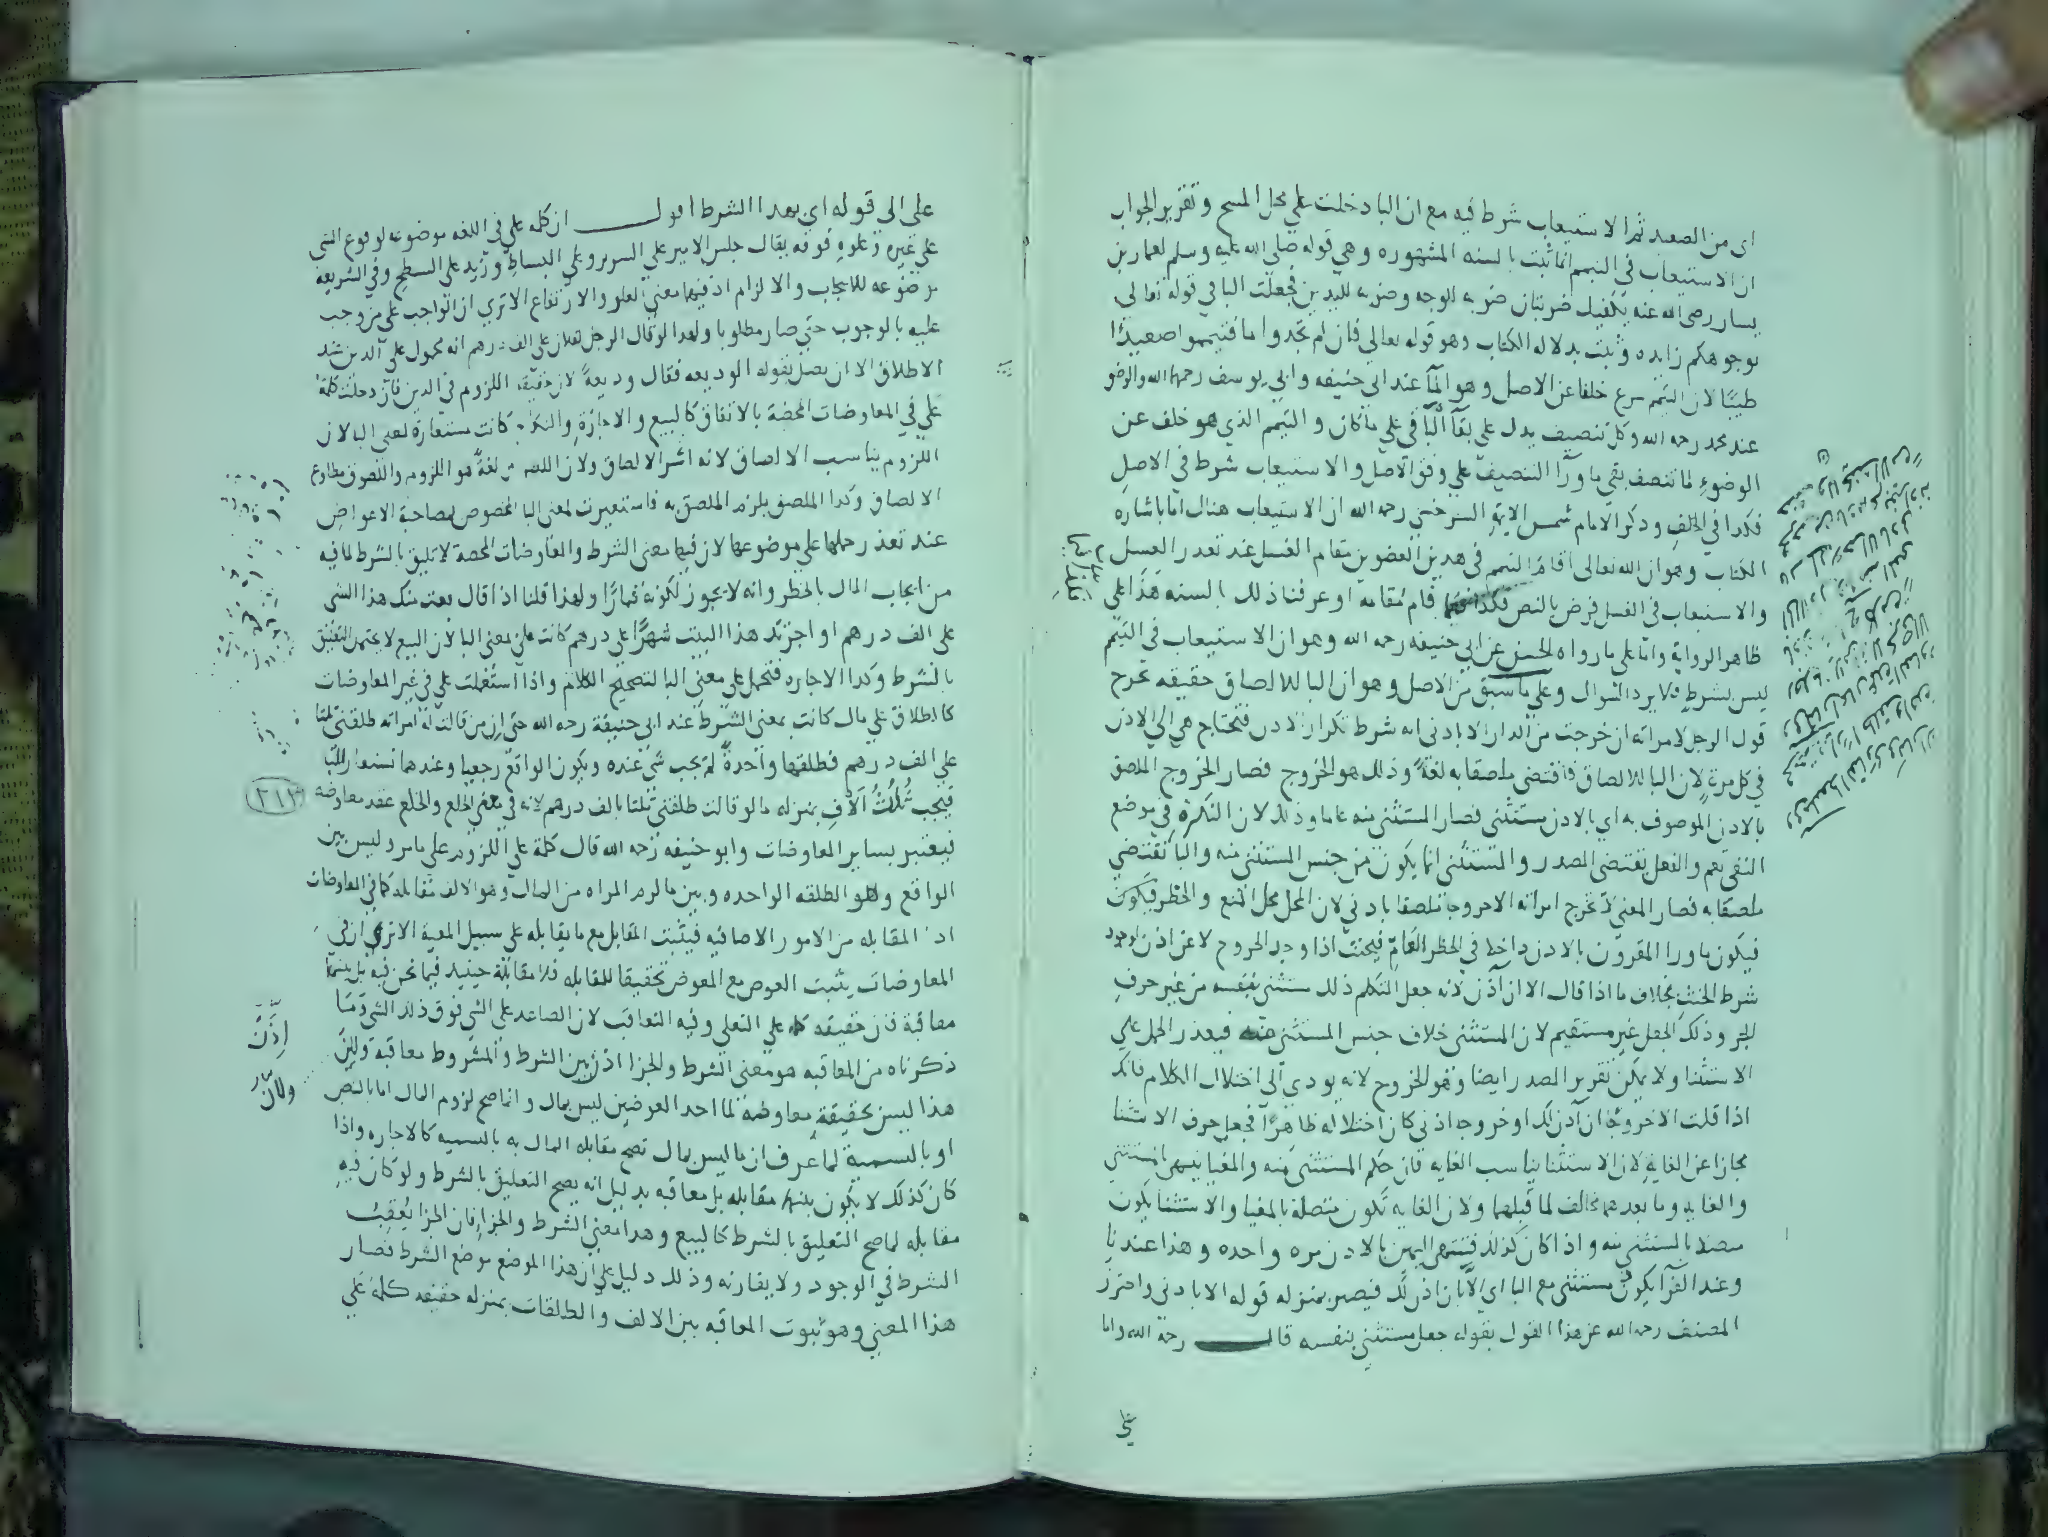 اى من الصعيد ثم الاستيعاب شرط فيه مع ان البا دخلت علي محل المسح وتقرير الجواب
ان الاستيعاب في التيمم انما ثبت بالسنه المشهوره وهي قوله صلى الله عليه وسلم لعمار بن
يسار رضى الله عنه يكفيك ضربتان ضربه للوجه وضربه لليدين فجعلت البا في قوله تعالى
بوجوهكم زايده وثبت بدلاله الكتاب وهو قوله تعالى فان لم تجدوا ما فتيمموا صعيدًا
طيبًا لان التيمم شرع خلفا عن الاصل وهو المآ عند ابي حنيفه وابي يوسف رحمهما الله والوضو
عند محمد رحمه الله وكل تنصيف يدل علي بقآ الباقي علي ما كان والتيمم الذي هو خلف عن
الوضوءِ لما تنصف بقي ما ورآ التنصيف علي وفق الاصل والاستيعاب شرط في الاصل
فكدا في الخلف ودكر الامام شمس الايمه السرخسي رحمه الله ان الاستيعاب هناك اما باشاره
الكتاب وهو ان الله تعالى اقام التيمم في هدين العضوين مقام الغسل عند تعدر الغسل
والاستيعاب في الغسل فرض بالنص فكذا فيما قام مقامه او عرفنا ذلك بالسنه هَذَا علي
ظاهر الرواية واما على ما رواه الحسن عن ابي حنيفه رحمه الله وهو ان الاستيعاب في التيمم
ليس بشرط فلا يرد السوال وعلي ما سبق من الاصل وهو ان البا للالصاق حقيقه يخرج
قول الرجل لامراته ان خرجت من الدار الا بادني انه شرط تكرار الادن فتحتاج هي الي الادن
في كل مرة لان البا للالصاق فاقتضى ملصقا به لغةً وذلك هو الخروج فصار الخروج الملصق
بالادن الموصوف به اي بالادن مستثنى فصار المستثنى منه عاما وذلك لان النكرة في موضع
النفي تعم والفعل يقتضى المصدر والمستثنى انما يكون من جنس المستثنى منه والبا تقتضي
ملصقا به فصار المعني لا تخرج امراته الا خروجا ملصقا بادني لان المحل محل المنع والحظر فيكون
فيكون ما ورا المقرون بالادن داخلا في الحظر العام فيحنث اذا وجد الخروج لا عن اذن لوجود
شرط الحنث بخلاف ما اذا قال الا ان آذن لانه جعل التكلم ذلك مستثنى بنفسه من غير حرف
الجر وذلك الجعل غير مستقيم لان المستثنى خلاف جنس المستثنى منه فيعدر الحمل علي
الاستثنا ولا يمكن تقرير المصدر ايضا وهو الخروج لانه يودي الى اختلال الكلام فانك
اذا قلت الا خروجًا ان آدن لك او خروجه ادني كان اختلاله ظاهرًا فجعل حرف الاستثنا
مجازا عن الغاية لان الاستثنا يناسب الغايه فان حكم المستثنى منه والمغيا ينتهى بالمستثنى
والغايه وما بعدهما مخالف لما قبلهما ولان الغايه تكون متصلة بالمغيا والاستثنا يكون
متصلا بالمستثنى منه واذا كان كذلك فتنتهي اليمين بالادن مره واحده وهذا عندنا
وعند الفرآ يكون مستثنى مع البا اي الا بان اذن لك فيصير بمنزله قوله الا بادني واحترز
المصنف رحمه الله عن هذا القول بقوله جعل مستثنى بنفسه قال رحمه الله واما
على الى قوله اي بعدا الشرط اقول ان كلمه علي في اللغه موضوعه لوقوع الشي
علي غيره وعلوه فوقه يقال جلس الامير علي السرير وعلي البساط وزيد علي السطح وفي الشريعه
موضوعه للايجاب والالزام اذ فيهما معني العلو والارتفاع الا تري ان الواجب علي من وجب
عليه بالوجوب حتي صار مطلوبا ولهدا لو قال الرجل لفلان علي الف درهم انه محمول علي الدين عند
الاطلاق الا ان يصل بقوله الوديعه فقال وديعةً لان حقيقه اللزوم في الدين فان دخلت كلمة
علي في المعاوضات المحضة بالاتفاق كالبيع والاجارة والنكاح كانت مستعارة لمعنى البا لان
اللزوم يناسب الالصاق لانه اثر الالصاق ولان اللصق لغةً هو اللزوم واللصوق مطاوع
الالصاق وكدا الملصق يلزم الملصق به فاستعيرت لمعنى البا المخصوص بمصاحبة الاعواض
عند تعذر حملها علي موضوعها لان فيها معنى الشرط والمعاوضات المحضة لا تليق بالشرط لما فيه
من ايجاب المال بالخطر وانه لا يجوز لكونه قمارًا ولهذا قلنا اذا قال بعت منك هذا الشي
على الف درهم او اجرتك هذا البيت شهرًا علي درهم كانت علي بمعنى البا لان البيع لا يحتمل التعليق
بالشرط وكدا الاجاره فتحمل علي معنى البا لتصحيح الكلام واذا استعملت علي في غير المعاوضات
كالطلاق علي مال كانت بمعني الشرط عند ابي حنيفة رحمه الله حتى ان من قالت له امراته طلقني ثلثا
علي الف درهم فطلقها واحدة لم يجب شي عنده ويكون الواقع رجعيا وعندهما تستعار للبا
فيجب ثُلُثُ الالْفِ بمنزله ما لو قالت طلقني ثلثا بالف درهم لانه في معنى الخلع والخلع عقد معاوضه
فيعتبر بساير المعاوضات وابو حنيفه رحمه الله قال كلمة علي اللزوم علي ما مر وليس بين
الواقع وهو الطلقه الواحده وبين ما لزم المراه من المال وهو الالف مقابله كما في المعاوضات
اد المقابله من الامور الاضافيه فيثبت المقابل مع ما يقابله علي سبيل المعية الا ترى ان في
المعاوضات يثبت العوض مع المعوض تحقيقا للمقابله فلا مقابلة حينيد فيما نحن فيه بل بينهما
معاقبة فان حقيقه كلمه علي التعلي وفيه التعاقب لان الصاعد على الشي فوق ذلك الشي وَمَا
ذكرناه من المعاقبه هو معني الشرط والجزا اذ بين الشرط والمشروط معاقبه وليئن
هذا ليس بحقيقة معاوضة لما احد العوضين ليس بمال وانما صح لزوم المال اما بالنص
او بالتسمية لما عرف ان ما ليس بمال تصح مقابله المال به بالتسميه كالاجاره واذا
كان كذلك لا يكون بينهما مقابله بل معاقبه بدليل انه يصح التعليق بالشرط ولو كان فيه
مقابله لما صح التعليق بالشرط كالبيع وهدا معني الشرط والجزا فان الجزا يعقب
الشرط في الوجود ولا يقارنه وذلك دليل علي ان هذا الموضع موضع الشرط فصار
هذا المعني وهو ثبوت المعاقبه بين الالف والطلقات بمنزله حقيقه كلمة عَلي
٢١٣
اِذَنْ
ولان